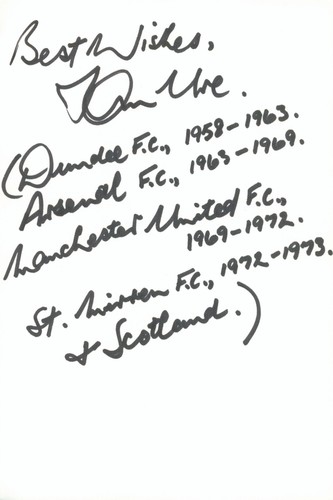 Best Wishes,
Ian Ure.
(Dundee F.C., 1958-1963.
Arsenal F.C., 1963-1969.
Manchester United F.C.,
1969-1972.
St. Mirren F.C., 1972-1973.
& Scotland.)